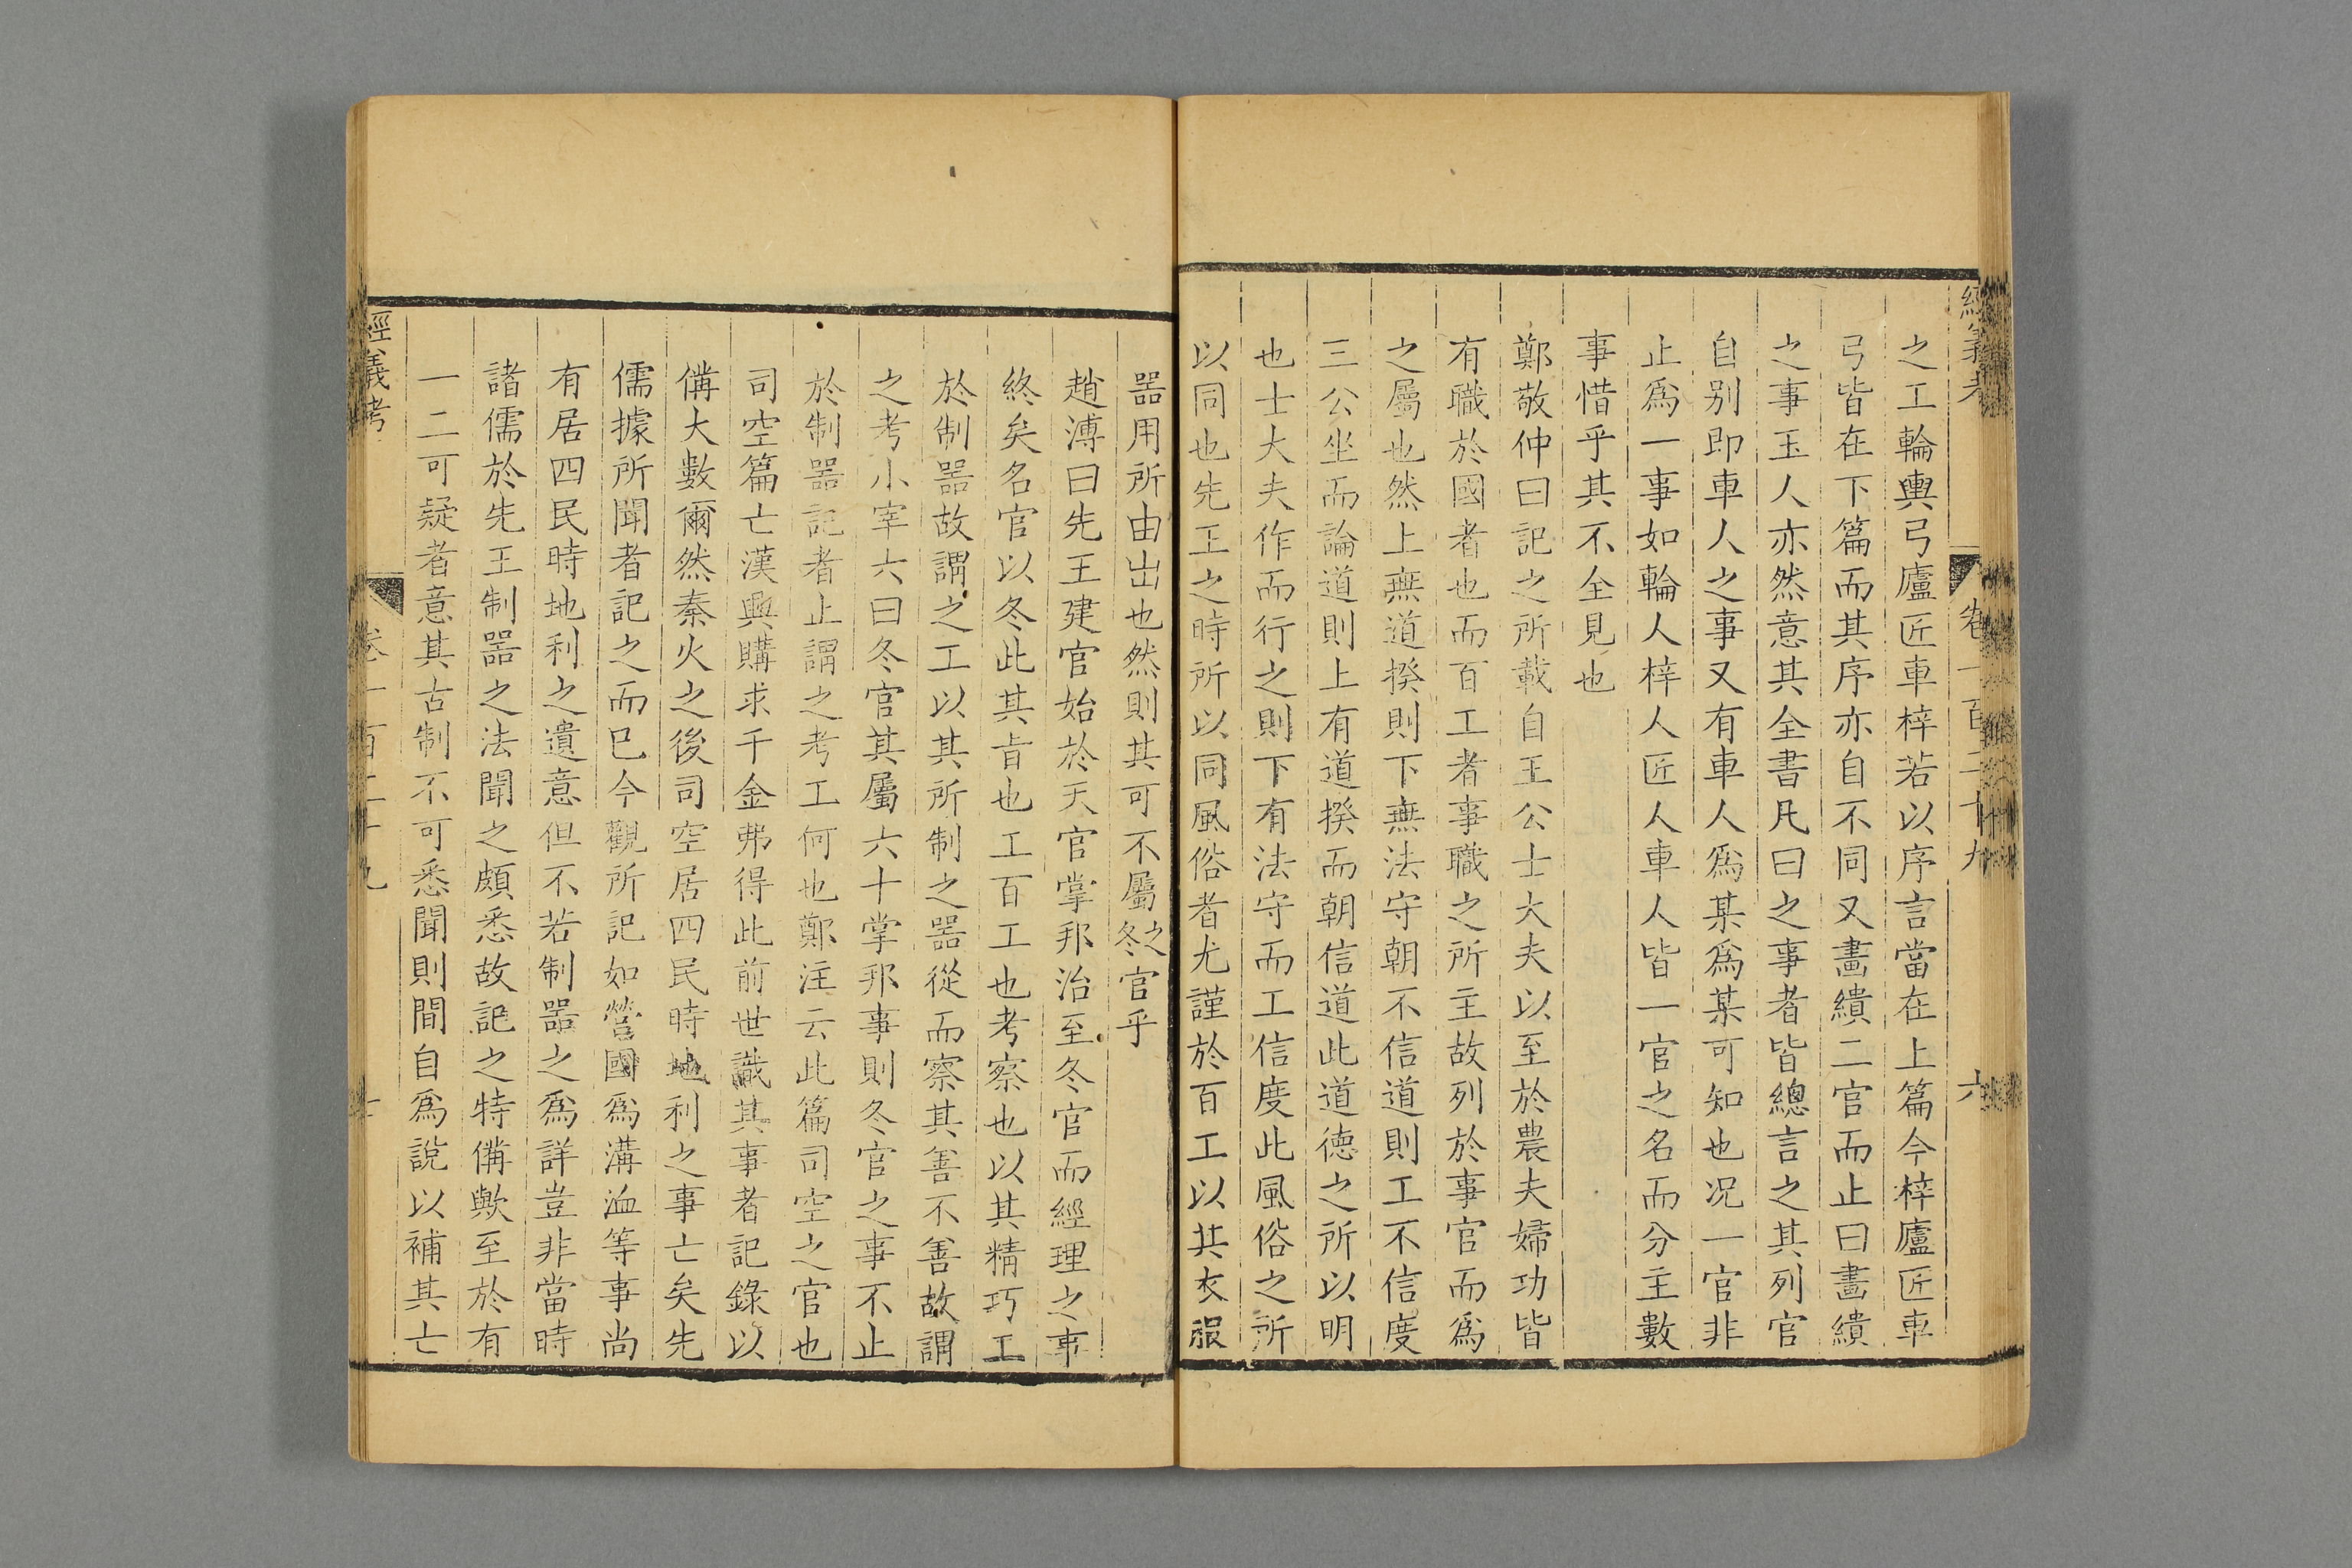 經義考 卷一百二十九 六
之工輪輿弓廬匠車梓若以序言當在上篇今梓廬匠車
弓皆在下篇而其序亦自不同又畫繢二官而止曰畫繢
之事玉人亦然意其全書凡曰之事者皆總言之其列官
自别即車人之事又有車人爲某爲某可知也况一官非
止爲一事如輪人梓人匠人車人皆一官之名而分主數
事惜乎其不全見也
鄭敬仲曰記之所載自王公士大夫以至於農夫婦功皆
有職於國者也而百工者事職之所主故列於事官而爲
之屬也然上無道揆則下無法守朝不信道則工不信度
三公坐而論道則上有道揆而朝信道此道德之所以明
也士大夫作而行之則下有法守而工信度此風俗之所
以同也先王之時所以同風俗者尤謹於百工以其衣服
器用所由出也然則其可不屬之冬官乎
趙溥曰先王建官始於天官掌邦治至冬官而經理之事
終矣名官以冬此其㫖也工百工也考察也以其精巧工
於制器故謂之工以其所制之器從而察其善不善故謂
之考小宰六曰冬官其屬六十掌邦事則冬官之事不止
於制器記者止謂之考工何也鄭注云此篇司空之官也
司空篇亡漢興購求千金弗得此前世識其事者記錄以
備大數爾然秦火之後司空居四民時地利之事亡矣先
儒據所聞者記之而巳今觀所記如營國爲溝洫等事尚
有居四民時地利之遺意但不若制器之爲詳豈非當時
諸儒於先王制器之法聞之頗悉故記之特備歟至於有
一二可疑者意其古制不可悉聞則間自爲說以補其亡
經義考 卷一百二十九